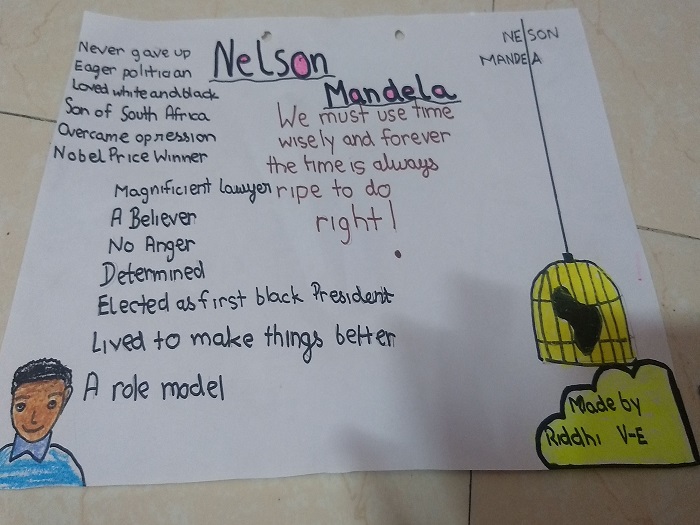 Nelson
Mandela
Never gave up
Eager politician
Loved white and black
Son of South Africa
Overcame opression
Nobel Price Winner
Magnificient lawyer
A Believer
No Anger
Determined
Elected as first black President
Lived to make things better
A role model
We must use time
wisely and forever
the time is always
ripe to do
right!
NELSON
MANDELA
Made by
Riddhi V-E